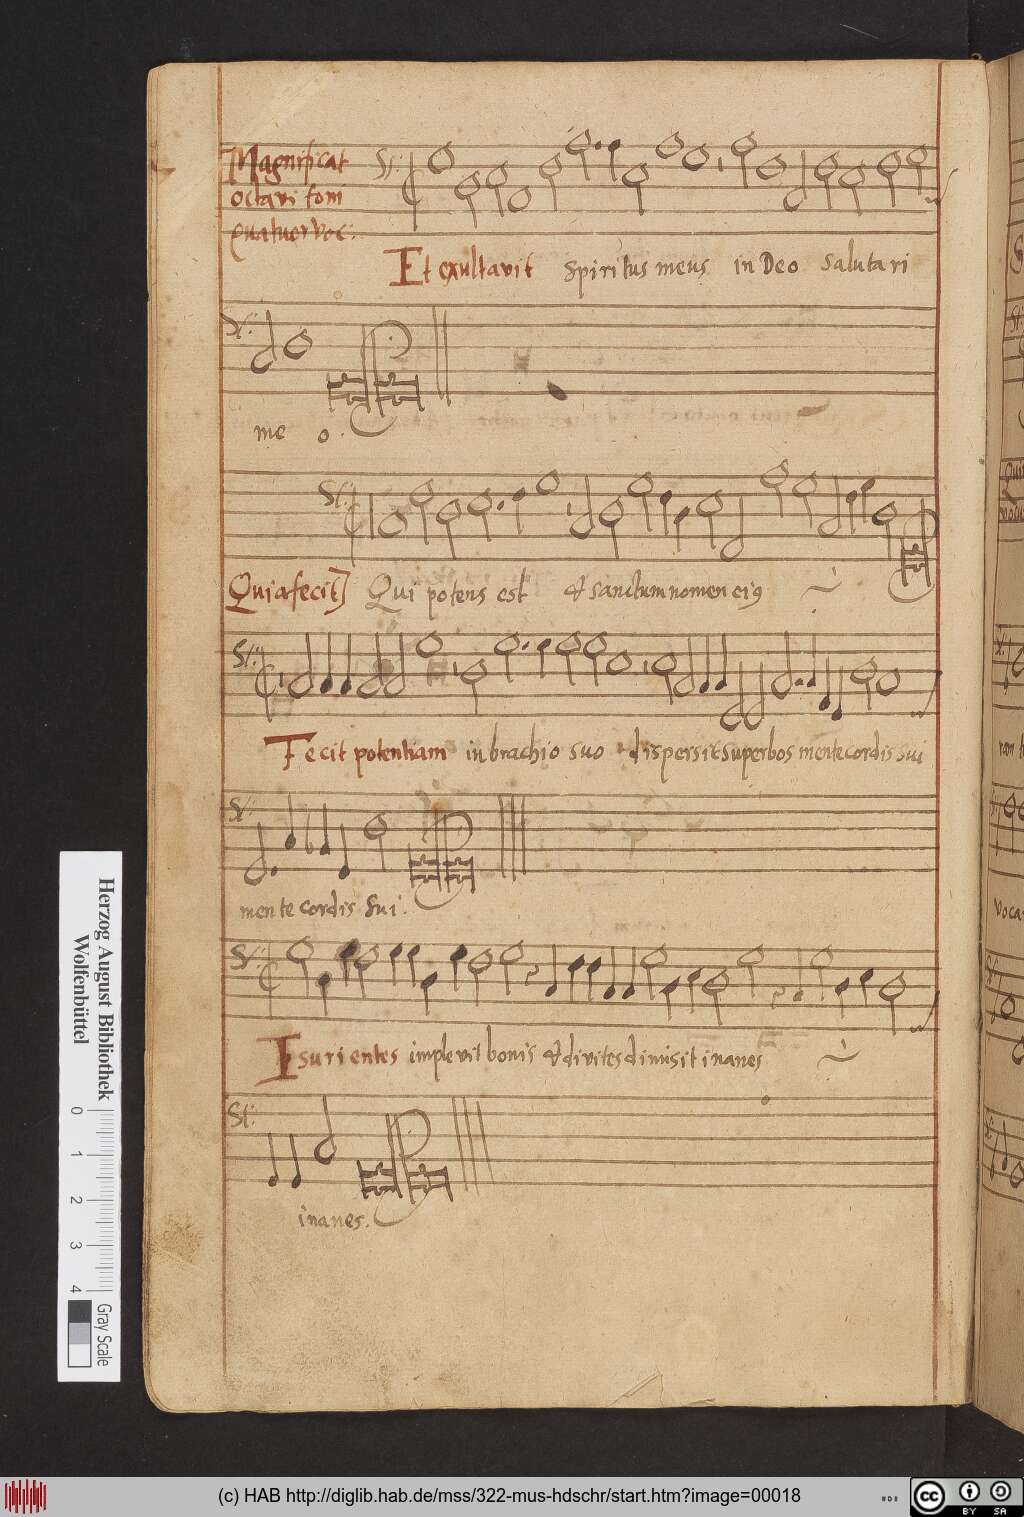 Magnificat
octavi toni
quatuor voc:
Et exultavit spiritus meus in Deo salutari
me o.
Quia fecit] Qui potens est & sanctum nomen eiꝰ
Fecit potentiam in brachio suo dispersit superbos mente cordis sui
mente cordis sui.
Esurientes implevit bonis & divites dimisit inanes
inanes.
Herzog August Bibliothek
Wolfenbüttel
0 1 2 3 4
Gray Scale
(c) HAB http://diglib.hab.de/mss/322-mus-hdschr/start.htm?image=00018
cc BY SA